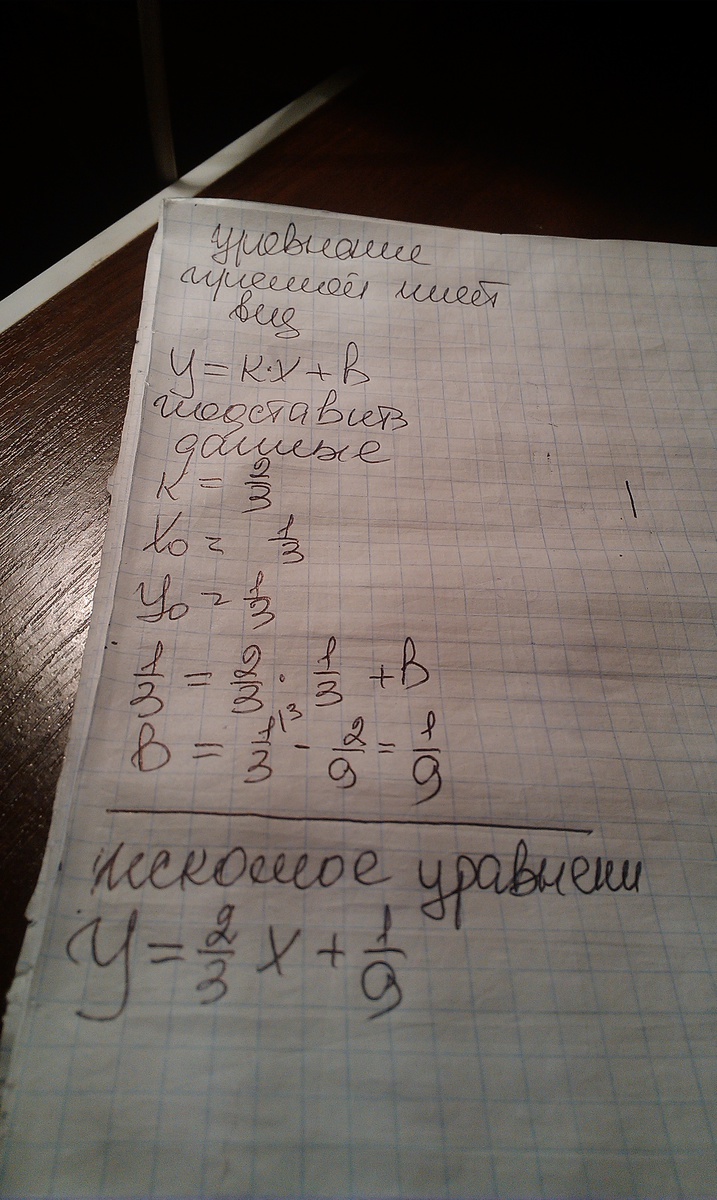 уравнение
прямой имеет
вид
y = k·x + b
подставить
данные
k = 2/3
x₀ = 1/3
y₀ = 1/3
1/3 = 2/3 · 1/3 + b
b = 1/3 \3 - 2/9 = 1/9
искомое уравнени
y = 2/3 x + 1/9